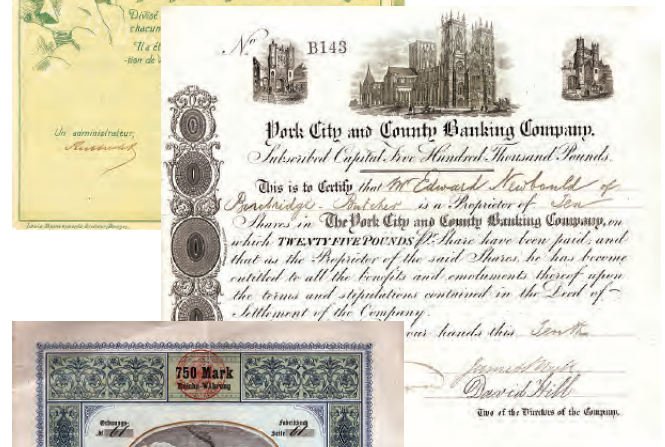 Divisé
chacun
Il a ét
-tion de
Un administrateur,
No B143
York City and County Banking Company.
Subscribed Capital Five Hundred Thousand Pounds.
This is to Certify that Mr Edward Newbould of
Butcher is a Proprietor of Ten
Shares in The York City and County Banking Company, on
which TWENTY FIVE POUNDS Pr. Share have been paid; and
that as the Proprietor of the said Shares, he has become
entitled to all the benefits and emoluments thereof upon
the terms and stipulations contained in the Deed of
Settlement of the Company.
our hands this Tenth
David Hill
Two of the Directors of the Company.
750 Mark
Reichs-Währung